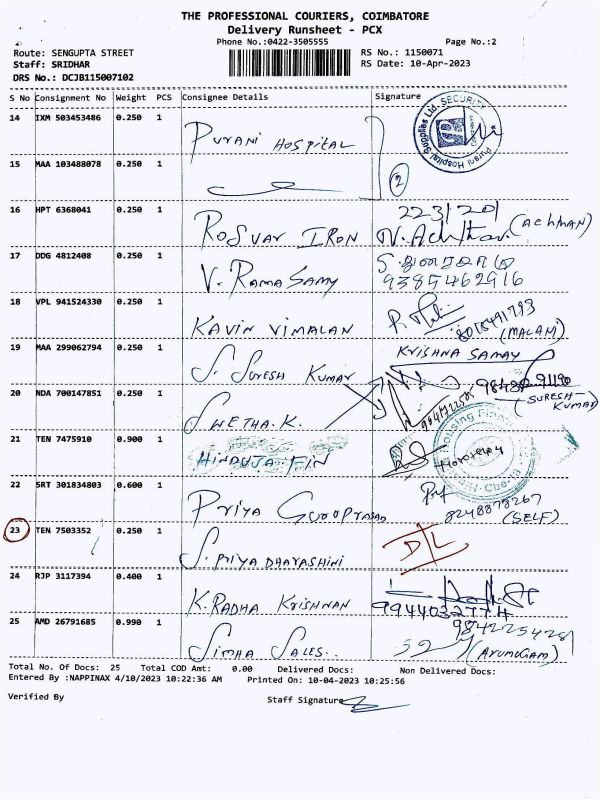 THE PROFESSIONAL COURIERS, COIMBATORE
Delivery Runsheet - PCX
Phone No.:0422-3505555 Page No.:2
Route: SENGUPTA STREET RS No.: 1150071
Staff: SRIDHAR RS Date: 10-Apr-2023
DRS No.: DCJB115007102
S No Consignment No Weight PCS Consignee Details Signature
14 IXM 503453486 0.250 1 PURANI HOSPITAL
Purani Hospital Supplies Ltd. SECURITY
15 MAA 103488078 0.250 1
2
16 HPT 6368041 0.250 1 ROSVAR IRON 223/201 (ACHMAN)
17 DDG 4812408 0.250 1 V. RAMA SAMY 9385462916
18 VPL 941524330 0.250 1 KAVIN VIMALAN (MALAM)
19 MAA 299062794 0.250 1 S. SURESH KUMAR KRISHNA SAMAY
20 NDA 700147851 0.250 1 SWETHA.K. (SURESH-KUMAR)
21 TEN 7475910 0.900 1 HINDUJA FIN
22 SRT 301834803 0.600 1 PRIYA GURUPRASAD 8248878267 (SELF)
23 TEN 7503352 0.250 1 S. PRIYA DHARASHINI D/L
24 RJP 3117394 0.400 1 K. RADHA KRISHNAN 9944032774
25 AMD 26791685 0.990 1 SIMHA SALES.. 9842254281 (ARUMUGAM)
Total No. Of Docs: 25 Total COD Amt: 0.00 Delivered Docs: Non Delivered Docs:
Entered By :NAPPINAX 4/10/2023 10:22:36 AM Printed On: 10-04-2023 10:25:56
Verified By Staff Signature